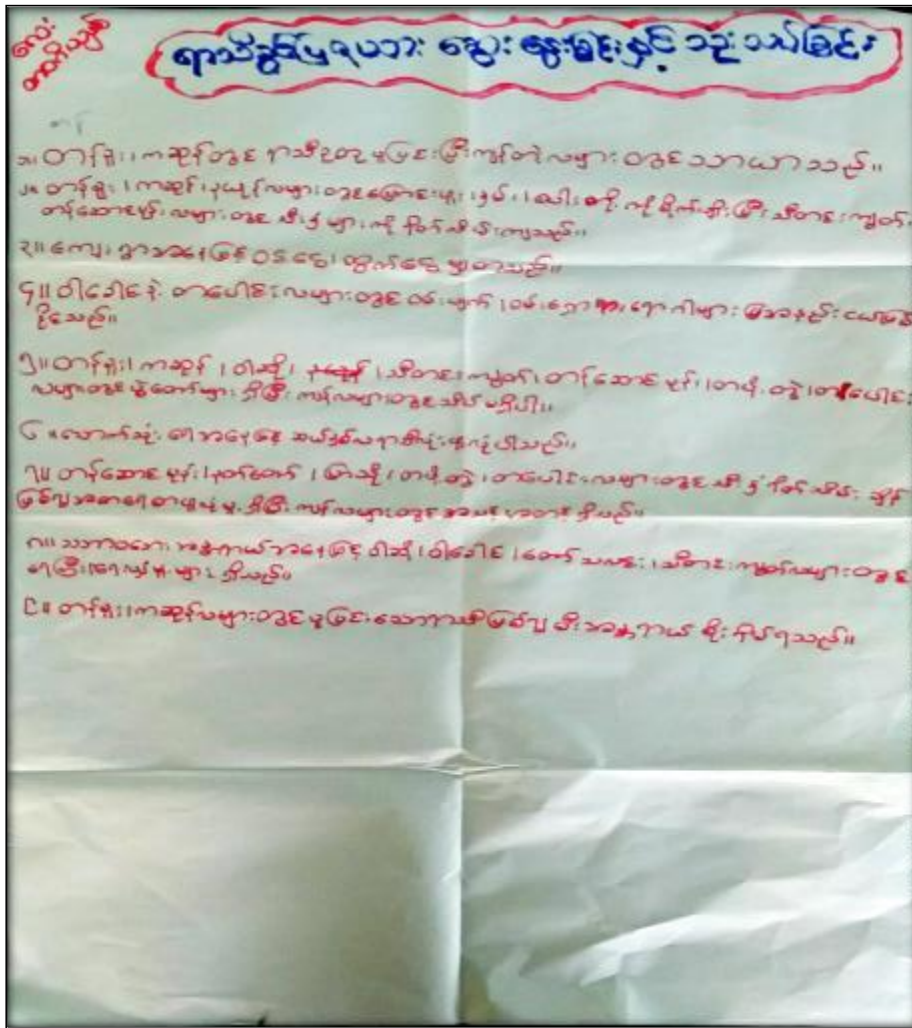 လေး
တာဂိယျစ်
ရာသီခွင်ပြဇယား ဆွေးနွေးခြင်းနှင့် သုံးသပ်ခြင်း
၁။ တန်ခူး၊ ကဆုန်တွင် ရာသီဥတု ပူပြင်းပြီးကျန်တဲ့လများ တွင်သာယာသည်။
၂။ တန်ခူး၊ ကဆုန်၊ နယုန်လများတွင်ပြောင်းဖူး၊ နှမ်း၊ စပါး တို့ ကိုစိုက်ပျိုးပြီး သီတင်းကျွတ်၊
တန်ဆောင်မုန်းလများတွင် သီးနှံများကို ရိတ်သိမ်းကြသည်။
၃။ ကျေးရွာအနေဖြင့် ဝင်ငွေ၊ ထွက်ငွေ မျှတသည်။
၄။ ဝါခေါင်နဲ့ တပေါင်းလများတွင် ဝမ်းပျက်၊ ဝမ်းလျှော၊ ရောဂါများ အနည်းငယ်ဖြစ်
၅။ တန်ခူး၊ ကဆုန်၊ ဝါဆို၊ သီတင်းကျွတ်၊ တန်ဆောင်မုန်း၊ တပို့တွဲ၊ တပေါင်း
လများတွင် ပွဲတော်များ ရှိပြီး ကျန်လများတွင် မရှိပါ။
၆။ သောက်သုံးရေအနေဖြင့် ဆယ့်နှစ်လရာသီသုံး ပါသည်။
၇။ တန်ဆောင်မုန်း၊ နတ်တော်၊ ပြာသို၊ တပို့တွဲ၊ တပေါင်းလများတွင် သီးနှံရိတ်သိမ်းချိန်
ဖြစ်၍ ရှိပြီး ကျန်လများတွင် ရှိသည်။
၈။ သဘာဝဘေး အန္တရာယ်အနေဖြင့် ဝါဆို၊ ဝါခေါင်၊ တော်သလင်း၊ သီတင်းကျွတ်လများတွင်
ရေကြီး၊ ရေလျှံမှုများ ရှိသည်။
၉။ တန်ခူး၊ ကဆုန်လများတွင် ပူပြင်းသောရာသီဖြစ်၍ မီးအန္တရာယ် စိုးရိမ်ရသည်။